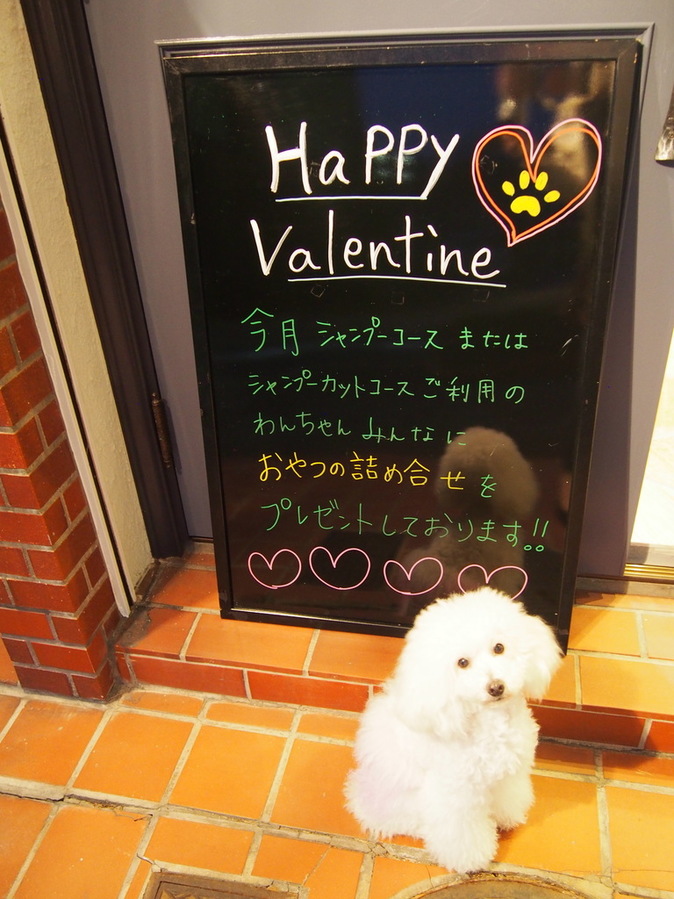 HaPPY
Valentine
今月 シャンプーコース または
シャンプーカットコース ご利用の
わんちゃん みんなに
おやつの詰め合せを
プレゼントしております!!